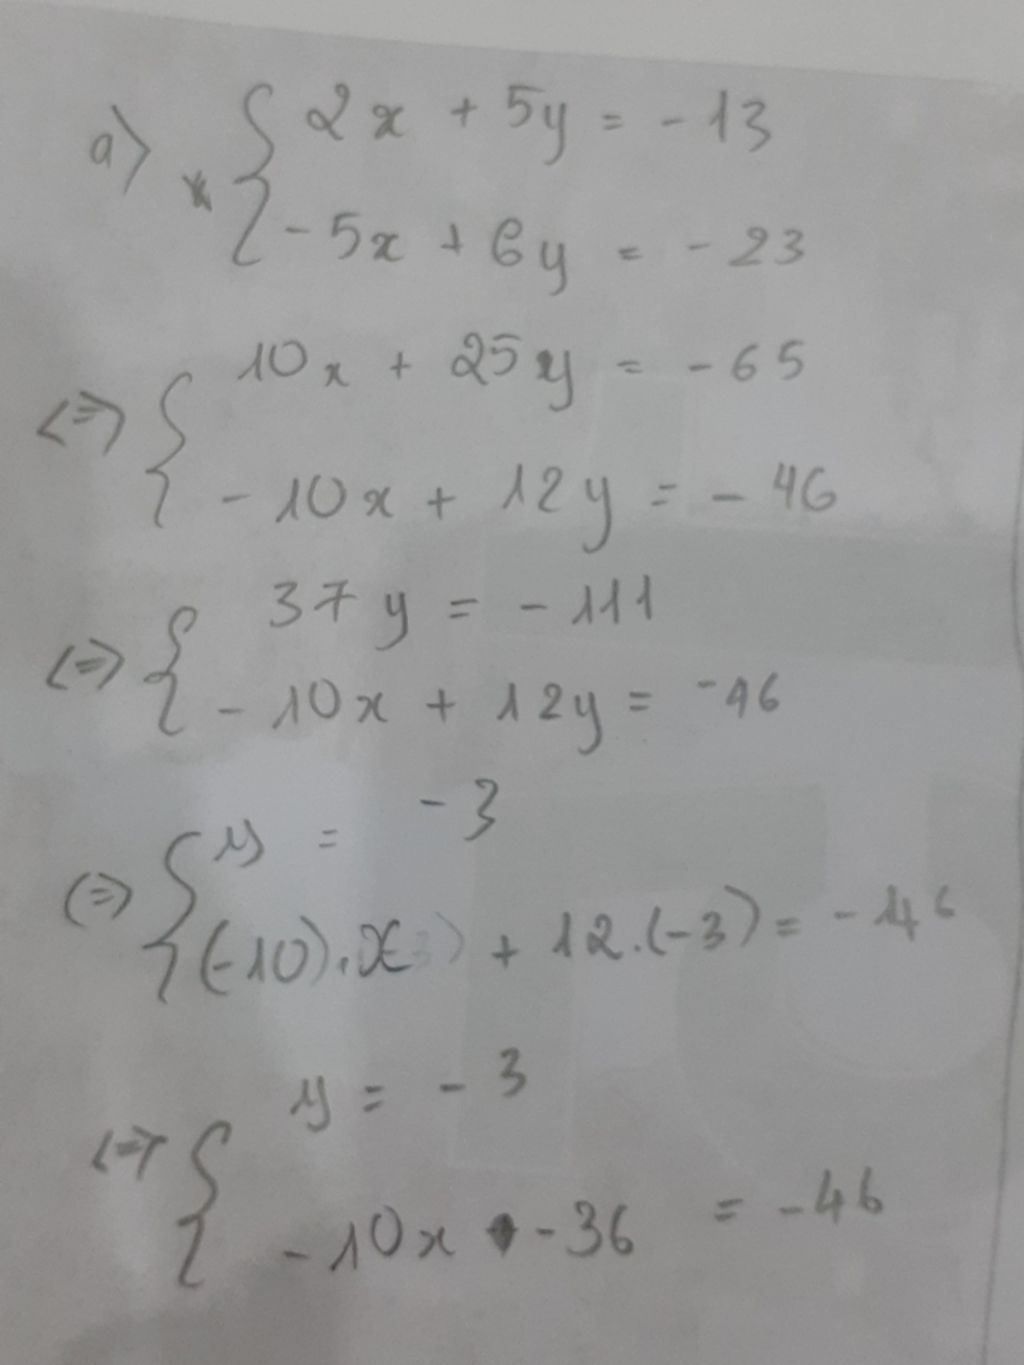 a) * { 2x + 5y = -13
-5x + 6y = -23
<=> { 10x + 25y = -65
-10x + 12y = -46
<=> { 37y = -111
-10x + 12y = -46
<=> { y = -3
(-10).x + 12.(-3) = -46
<=> { y = -3
-10x -36 = -46